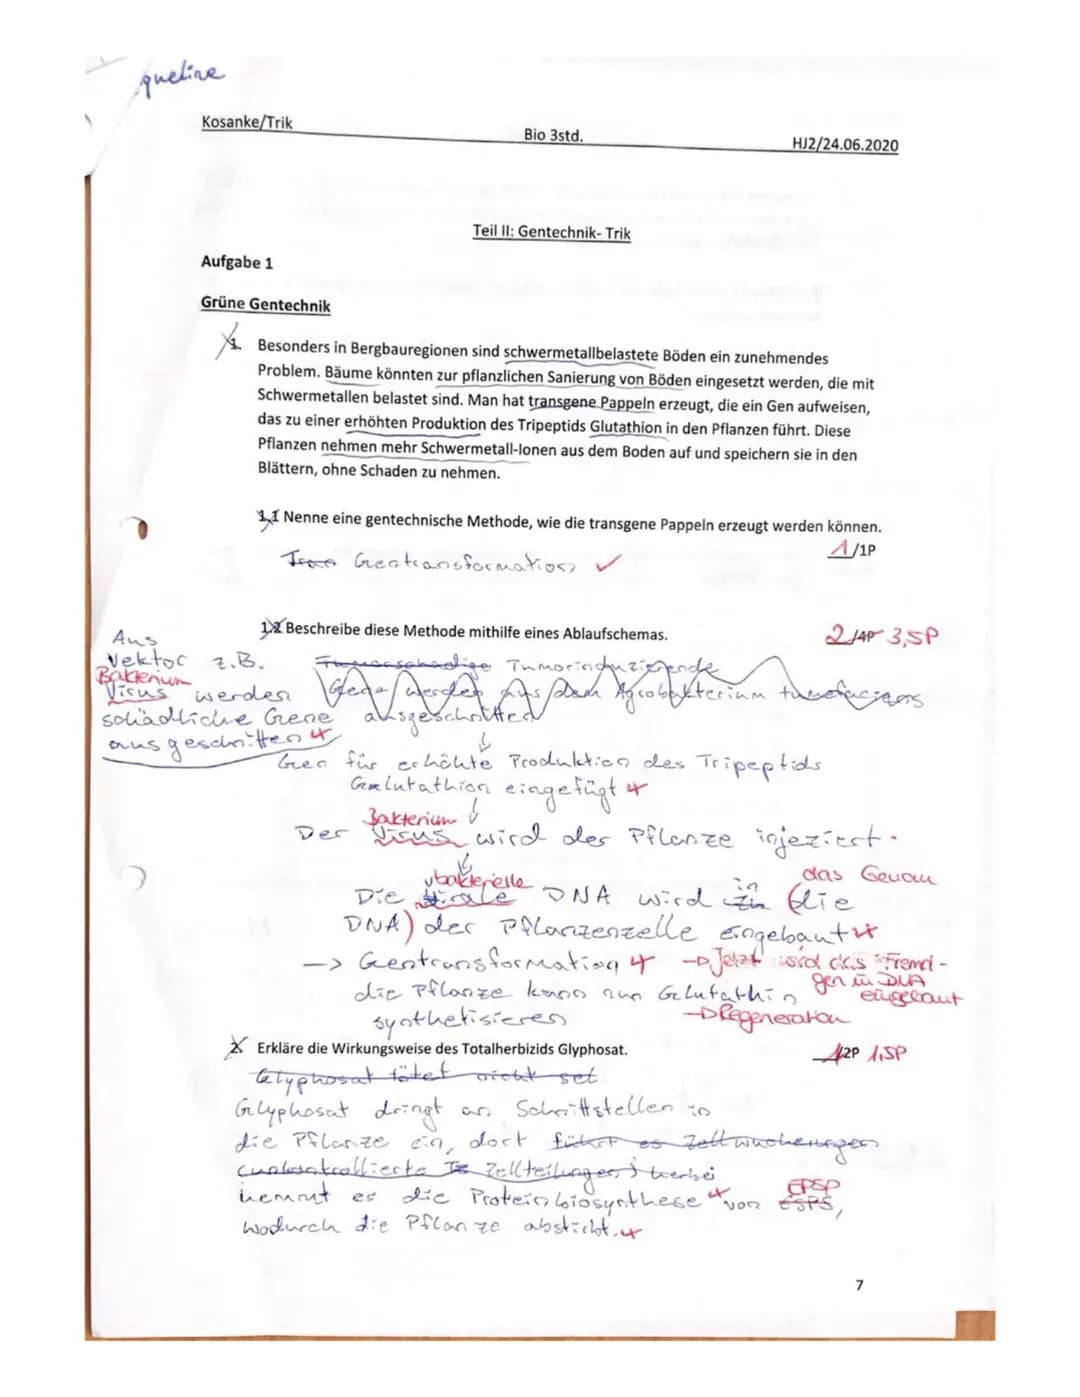 queline
Kosanke/Trik
Bio 3std.
HJ2/24.06.2020
Teil II: Gentechnik- Trik
Aufgabe 1
Grüne Gentechnik
1. Besonders in Bergbauregionen sind schwermetallbelastete Böden ein zunehmendes
Problem. Bäume könnten zur pflanzlichen Sanierung von Böden eingesetzt werden, die mit
Schwermetallen belastet sind. Man hat transgene Pappeln erzeugt, die ein Gen aufweisen,
das zu einer erhöhten Produktion des Tripeptids Glutathion in den Pflanzen führt. Diese
Pflanzen nehmen mehr Schwermetall-Ionen aus dem Boden auf und speichern sie in den
Blättern, ohne Schaden zu nehmen.
1.1 Nenne eine gentechnische Methode, wie die transgene Pappeln erzeugt werden können.
1/1P
Gentransformation ✓
1.2 Beschreibe diese Methode mithilfe eines Ablaufschemas.
2/4P 3,5P
Aus
Vektor z.B.
Bakterium
Virus werden
schädliche Gene
ausgeschnitten
Tumorschädige Tumorinduzierende
Gene werden aus dem Agrobakterium tumefaciens
ausgeschnitten
Gen für erhöhte Produktion des Tripeptids
Glutathion eingefügt
Bakterium
Der Virus wird der Pflanze injeziert.
bakterielle in das Genom
Die virale DNA wird in (die
DNA) der Pflanzenzelle eingebaut
-> Gentransformation → Jetzt wird das Fremd-
gen in DNA
eingebaut
die Pflanze kann nun Glutathin
synthetisieren
→ Regeneration
2. Erkläre die Wirkungsweise des Totalherbizids Glyphosat.
1/2P 1,5P
Glyphosat tötet nicht sel
Glyphosat dringt an Schnittstellen in
die Pflanze ein, dort führt es Zellwucherungen
(unkontrollierte Zellteilungen) hierbei
hemmt es die Proteinbiosynthese von ESPS,
EPSP
wodurch die Pflanze abstirbt.
7